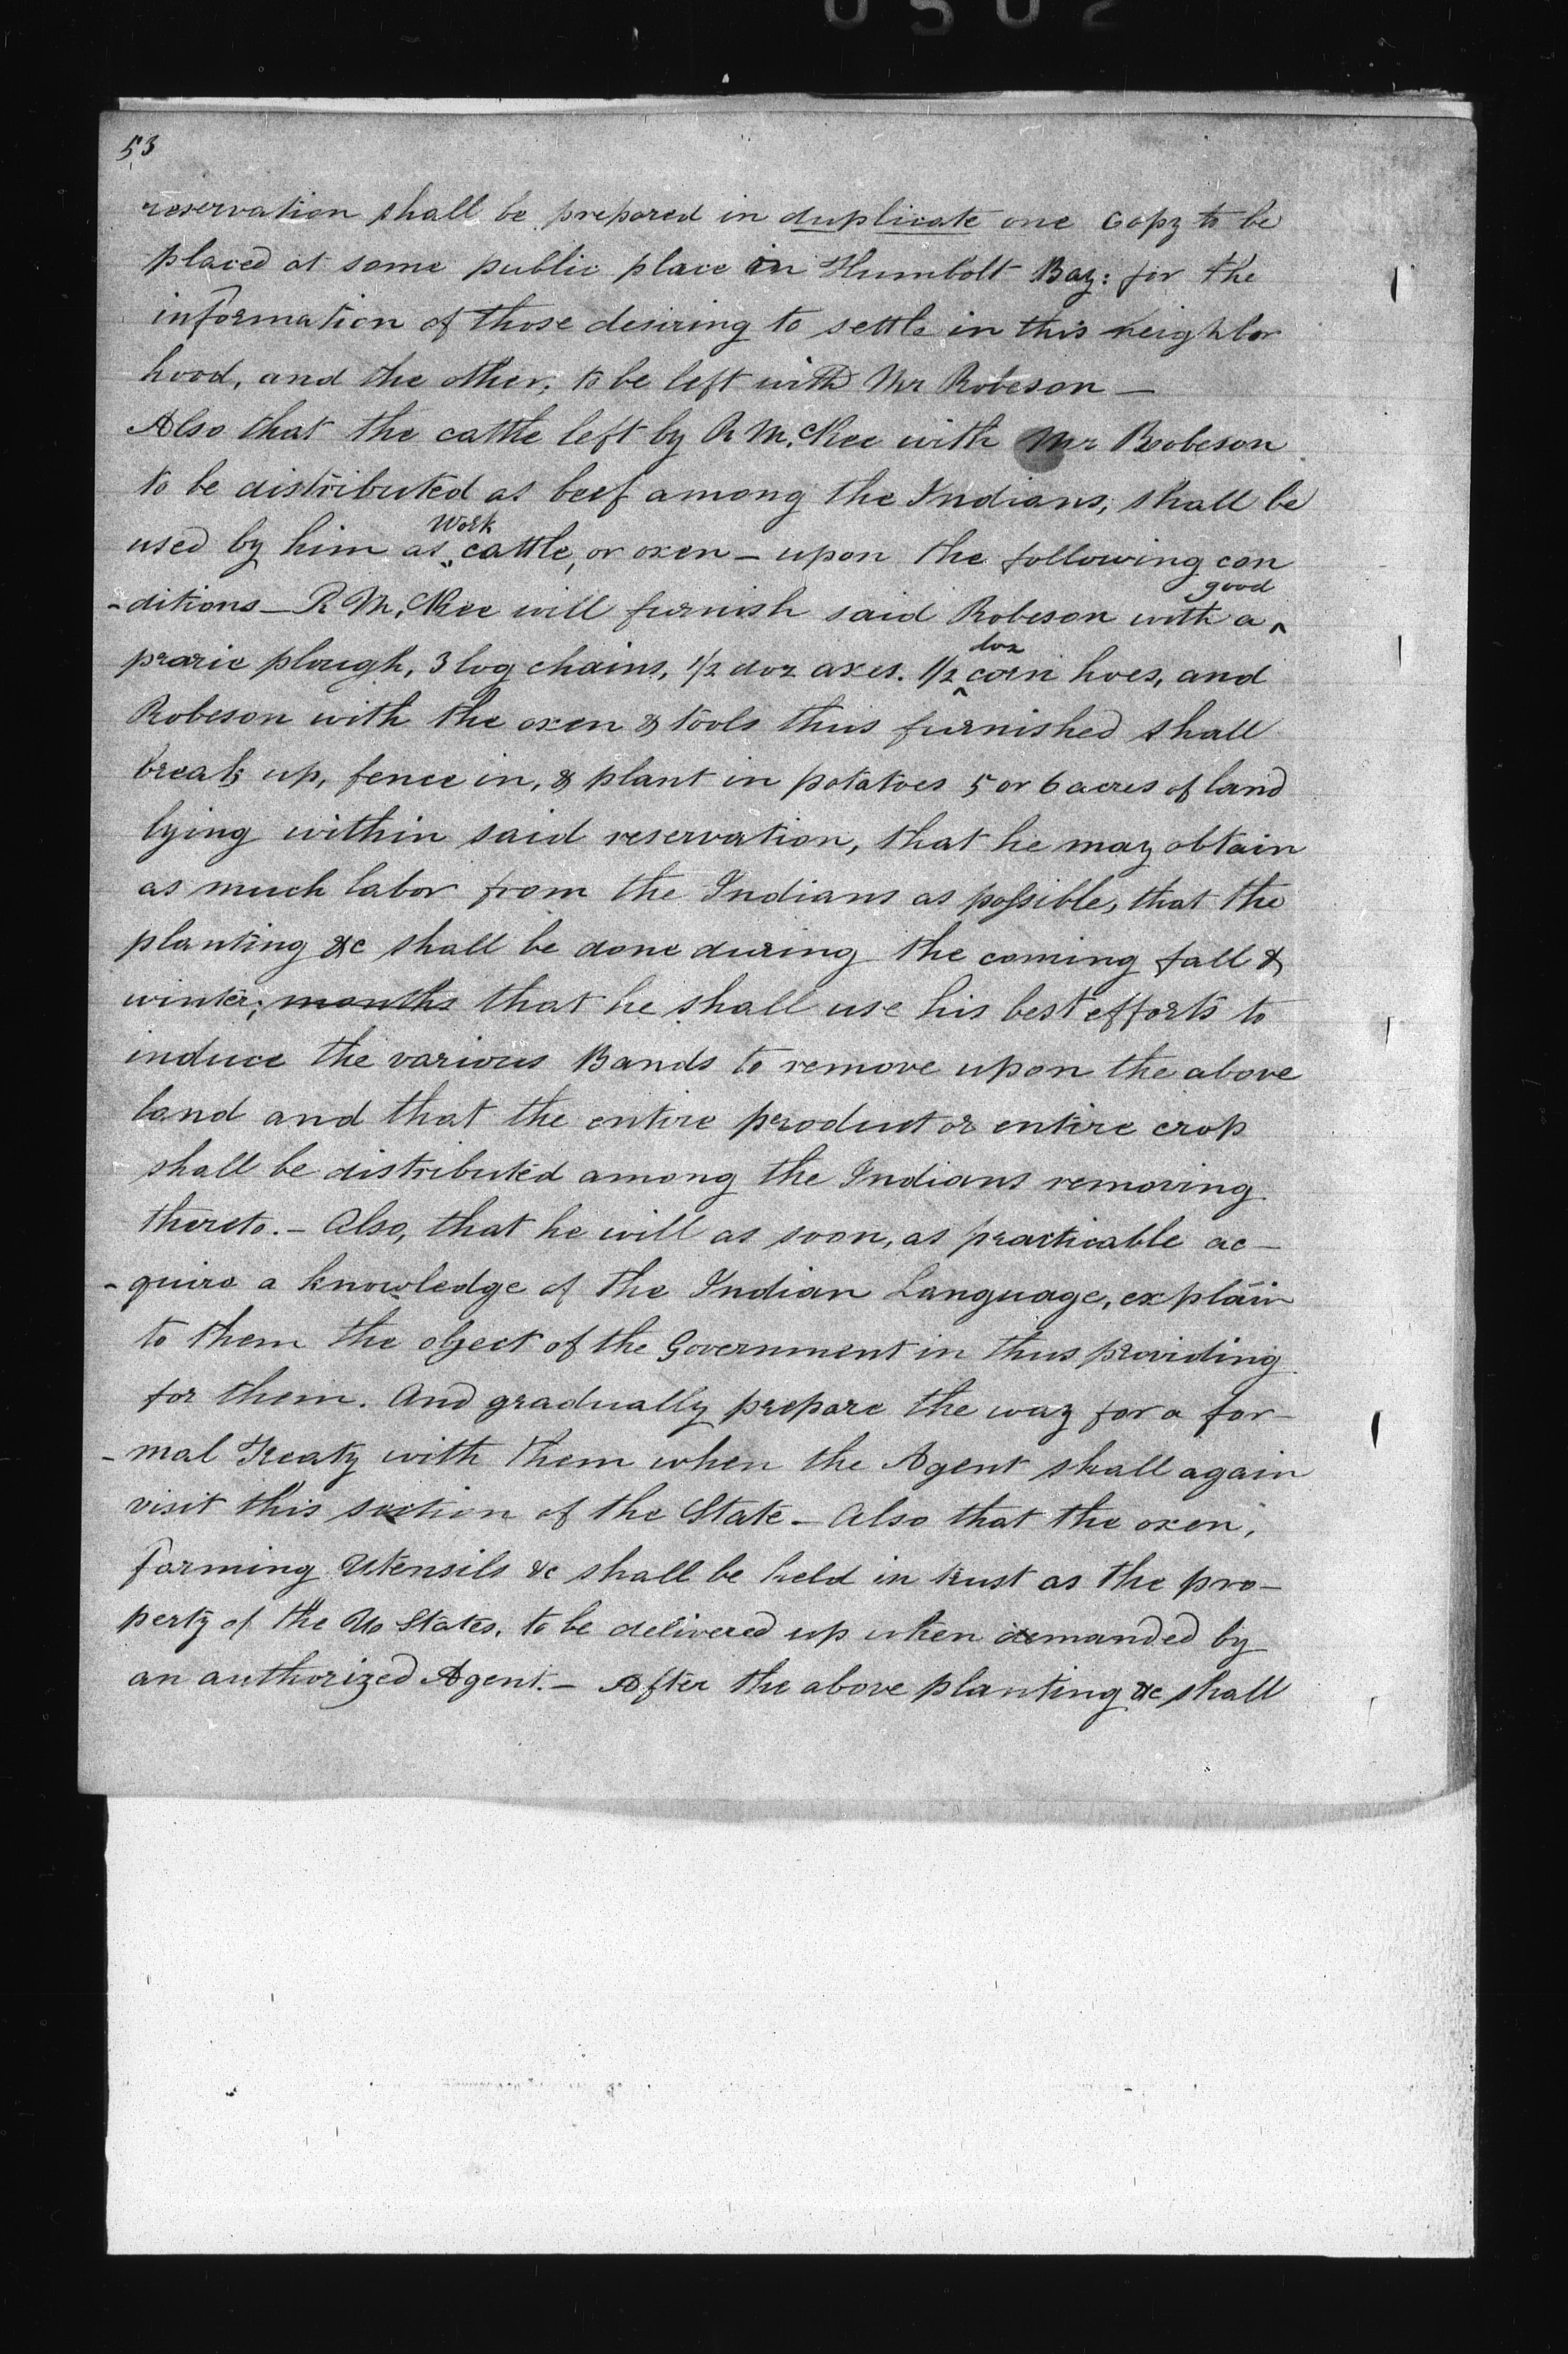 0502
53
reservation shall be prepared in duplicate one copy to be
placed at some public place in Humbolt Bay: for the
information of those desiring to settle in this neighbor
hood, and the other, to be left with Mr Robeson —
Also that the cattle left by R McKee with Mr Robeson
to be distributed as beef among the Indians, shall be
used by him as Work cattle, or oxen — upon the following con
-ditions — R McKee will furnish said Robeson with a good
prarie plough, 3 log chains, 1/2 doz axes. 1/2 doz corn hoes, and
Robeson with the oxen & tools thus furnished shall
break up, fence in, & plant in potatoes 5 or 6 acres of land
lying within said reservation, that he may obtain
as much labor from the Indians as possible, that the
planting &c shall be done during the coming fall &
winter; months that he shall use his best efforts to
induce the various Bands to remove upon the above
land and that the entire product or entire crop
shall be distributed among the Indians removing
thereto. — Also, that he will as soon, as practicable ac—
-quire a knowledge of the Indian Language, explain
to them the object of the Government in thus providing
for them. And gradually prepare the way for a for—
-mal Treaty with them when the Agent shall again
visit this section of the State — Also that the oxen,
farming Utensils &c shall be held in trust as the pro—
perty of the U States, to be delivered up when demanded by
an authorized Agent. — After the above planting &c shall